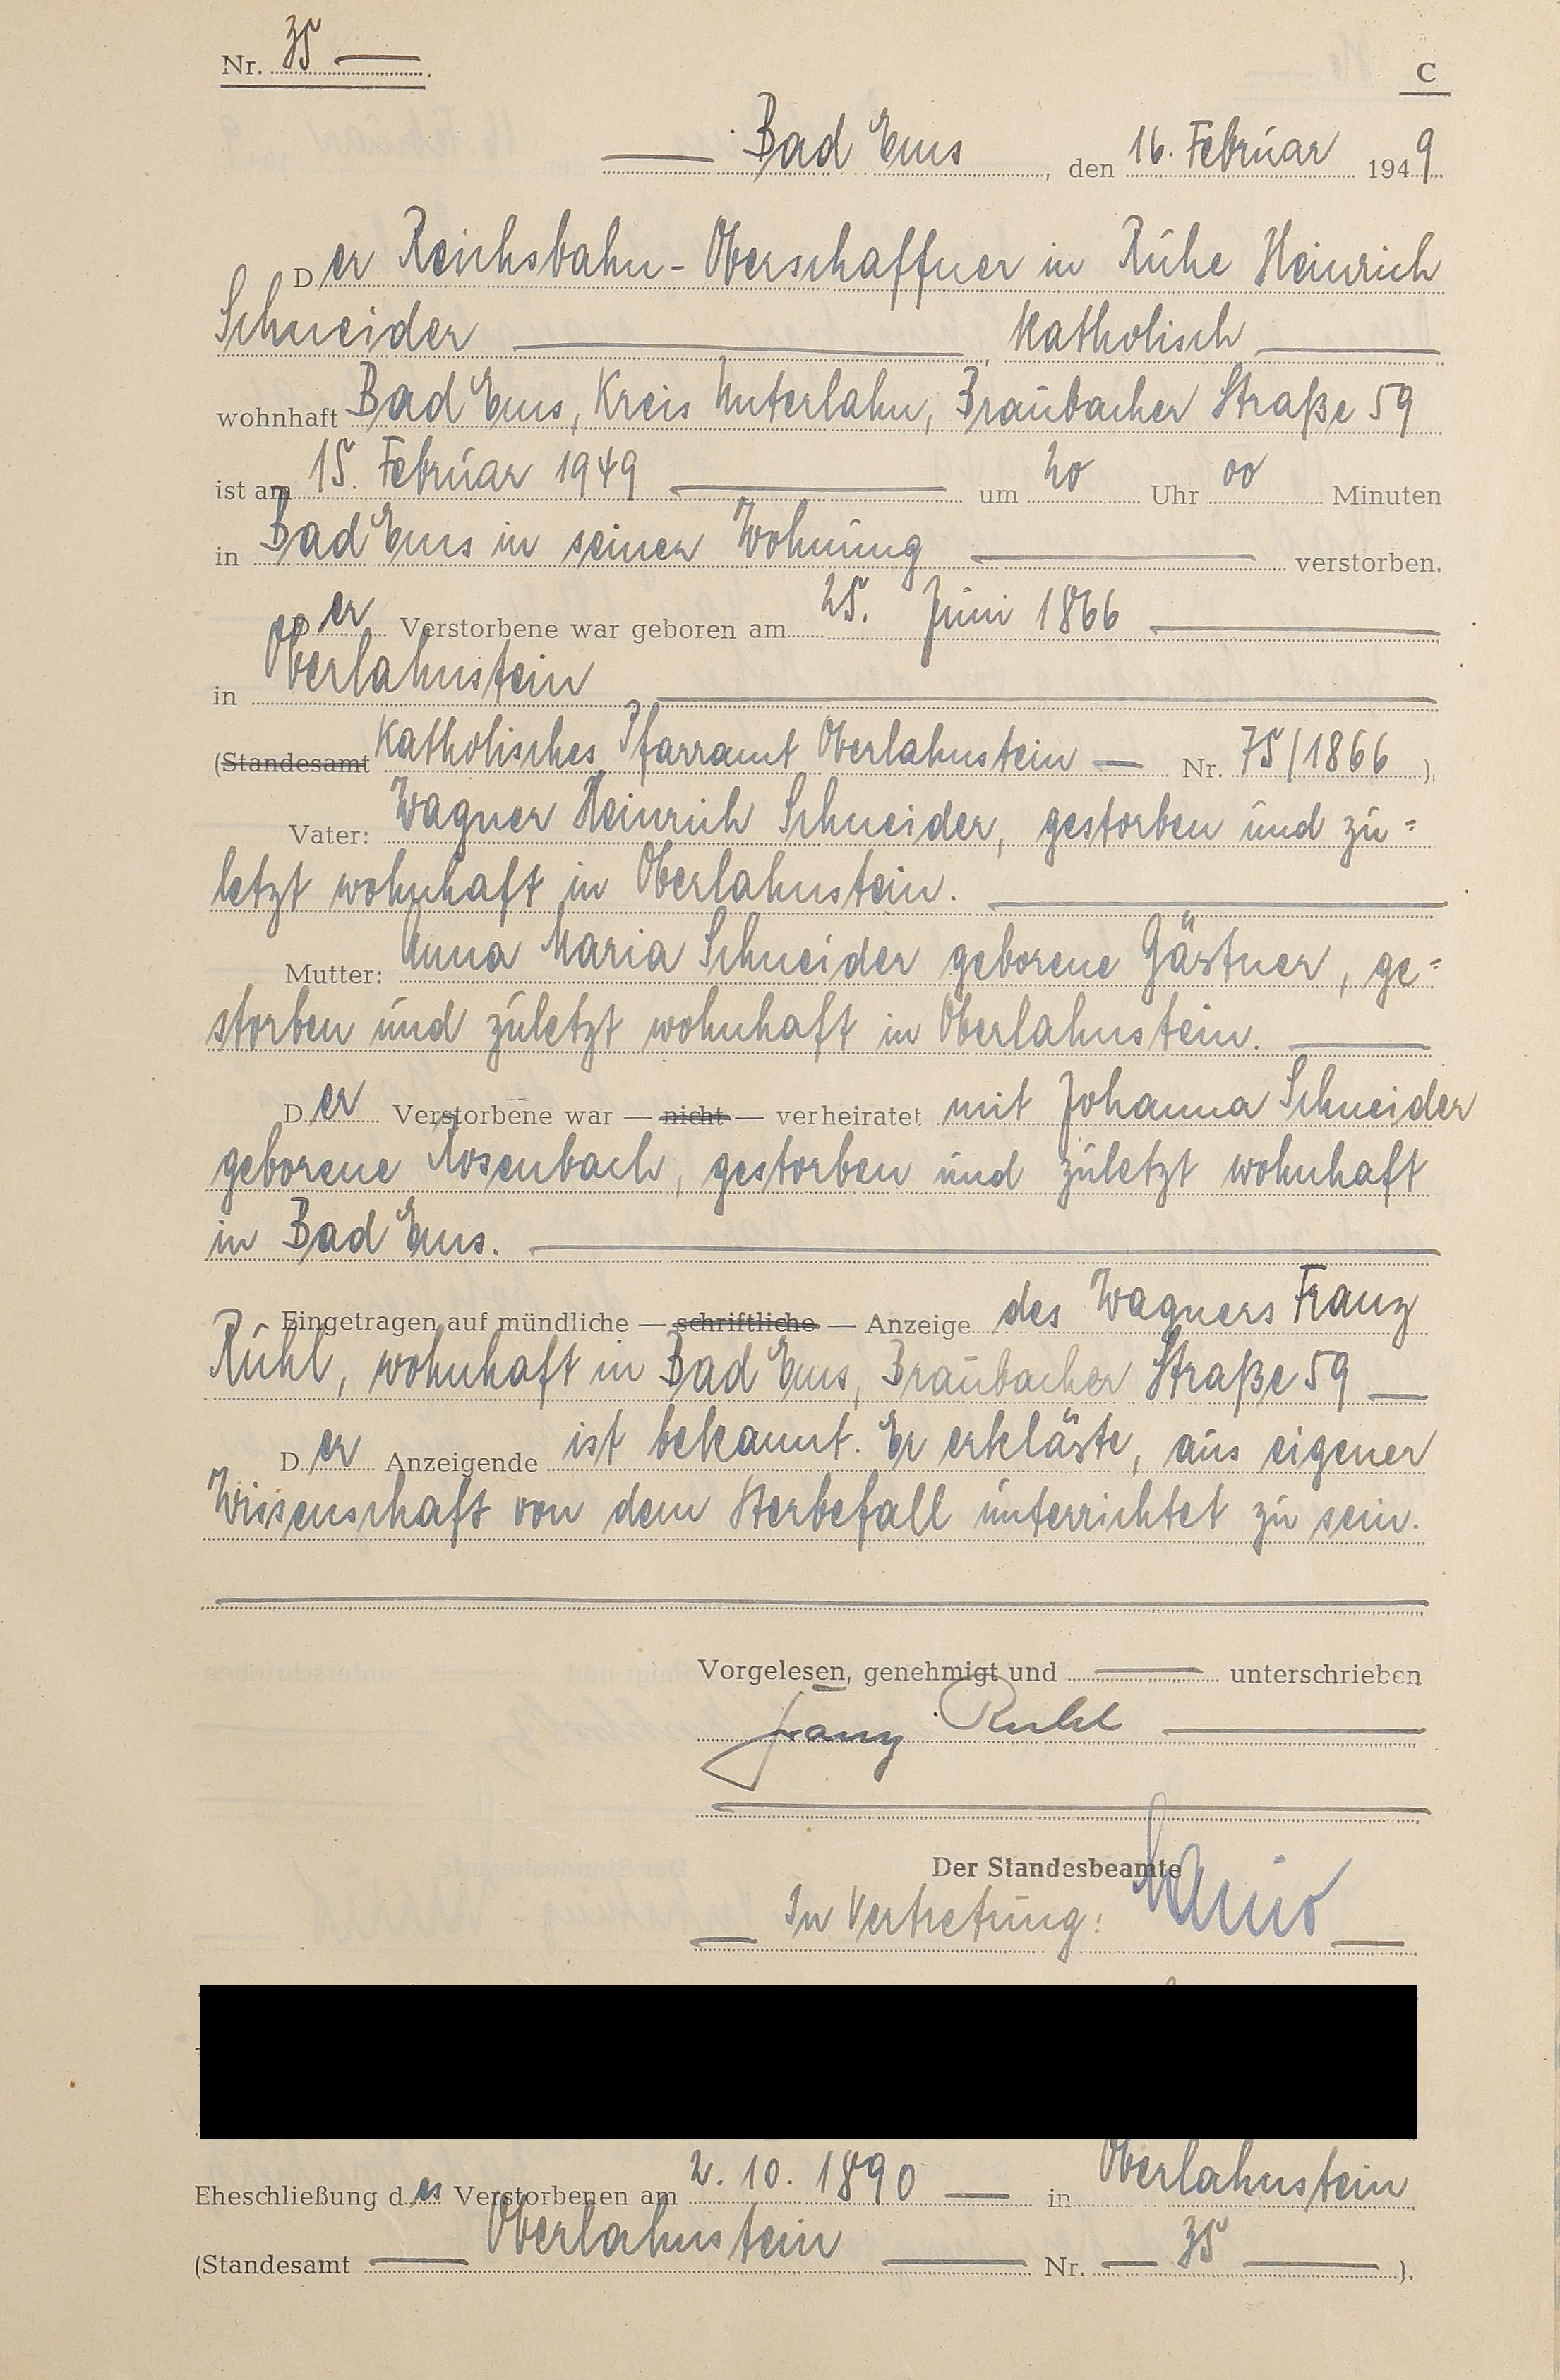 Nr. 35
C
Bad Ems, den 16. Februar 1949
Der Reichsbahn-Oberschaffner in Ruhe Heinrich
Schneider, katholisch
wohnhaft Bad Ems, Kreis Unterlahn, Braubacher Straße 59
ist am 15. Februar 1949 um 20 Uhr 00 Minuten
in Bad Ems in seiner Wohnung verstorben.
Der Verstorbene war geboren am 25. Juni 1866
in Oberlahnstein
(Standesamt Katholisches Pfarramt Oberlahnstein — Nr. 75/1866).
Vater: Wagner Heinrich Schneider, gestorben und zu=
letzt wohnhaft in Oberlahnstein.
Mutter: Anna Maria Schneider geborene Gärtner, ge=
storben und zuletzt wohnhaft in Oberlahnstein.
Der Verstorbene war — nicht — verheiratet mit Johanna Schneider
geborene Rosenbach, gestorben und zuletzt wohnhaft
in Bad Ems.
Eingetragen auf mündliche — schriftliche — Anzeige des Wagners Franz
Rühl, wohnhaft in Bad Ems, Braubacher Straße 59
Der Anzeigende ist bekannt. Er erklärte, aus eigener
Wissenschaft von dem Sterbefall unterrichtet zu sein.
Vorgelesen, genehmigt und unterschrieben
Franz Ruhl
Der Standesbeamte
In Vertretung:
Eheschließung des Verstorbenen am 2.10.1890 in Oberlahnstein
(Standesamt Oberlahnstein Nr. 35).